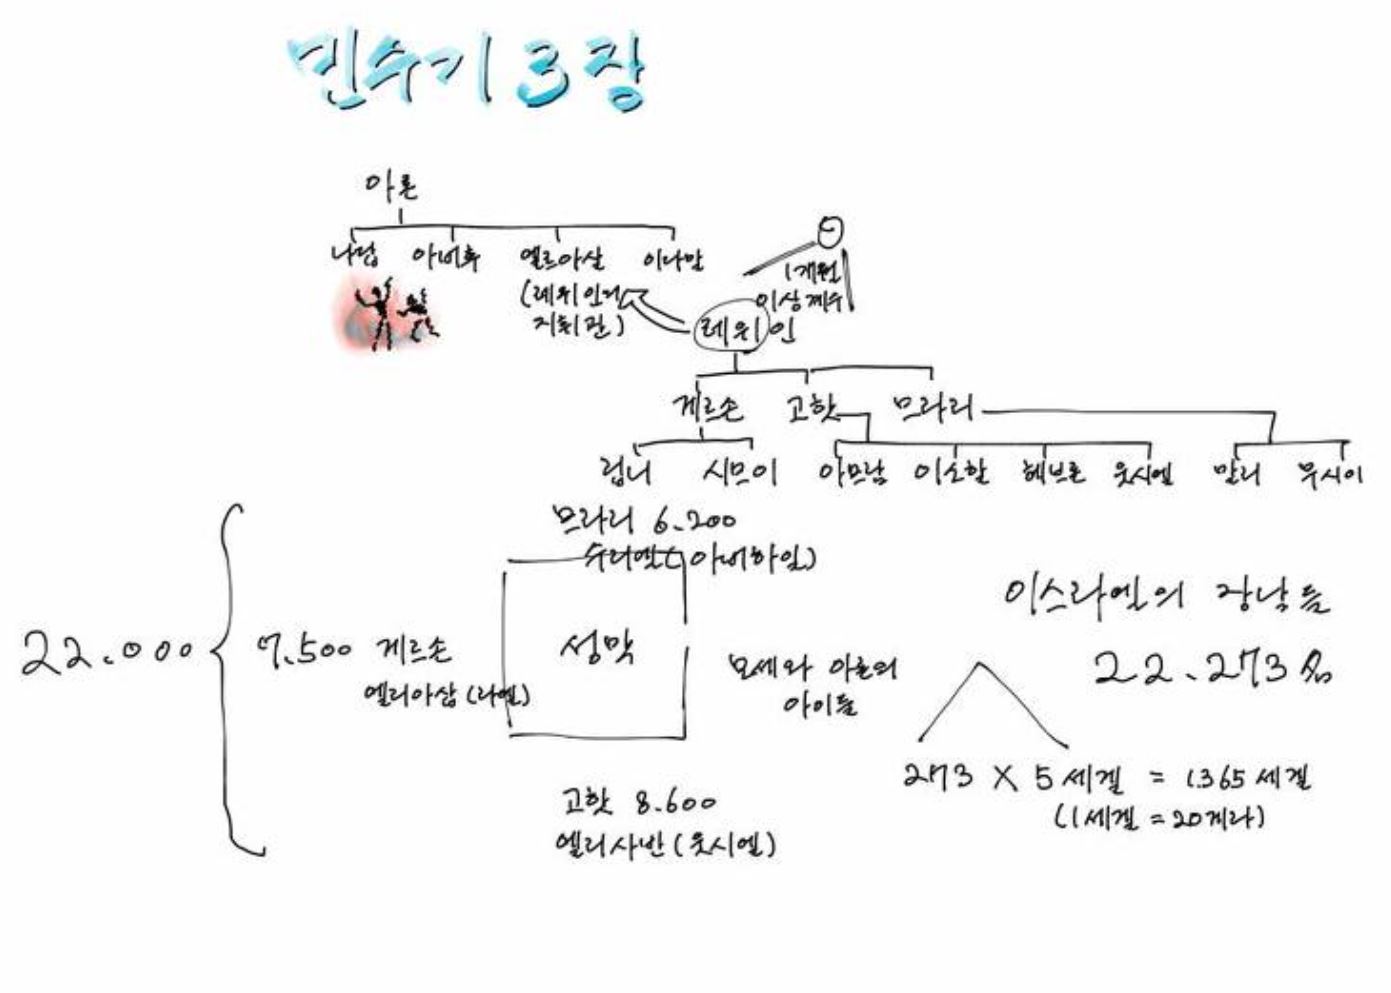 민수기 3장
아론
나답 아비후 엘르아살 이다말
(레위인의
지휘관)
1개월
이상 계수
레위인
게르손 고핫 므라리
립니 시므이 아므람 이스할 헤브론 웃시엘 말리 무시이
므라리 6.200
수리엘(아비하일)
이스라엘의 장남들
22.273名
22.000
7.500 게르손
엘리아삽(라엘)
성막
모세와 아론의
아이들
273 X 5세겔 = 1.365세겔
(1세겔 = 20게라)
고핫 8.600
엘리사반(웃시엘)